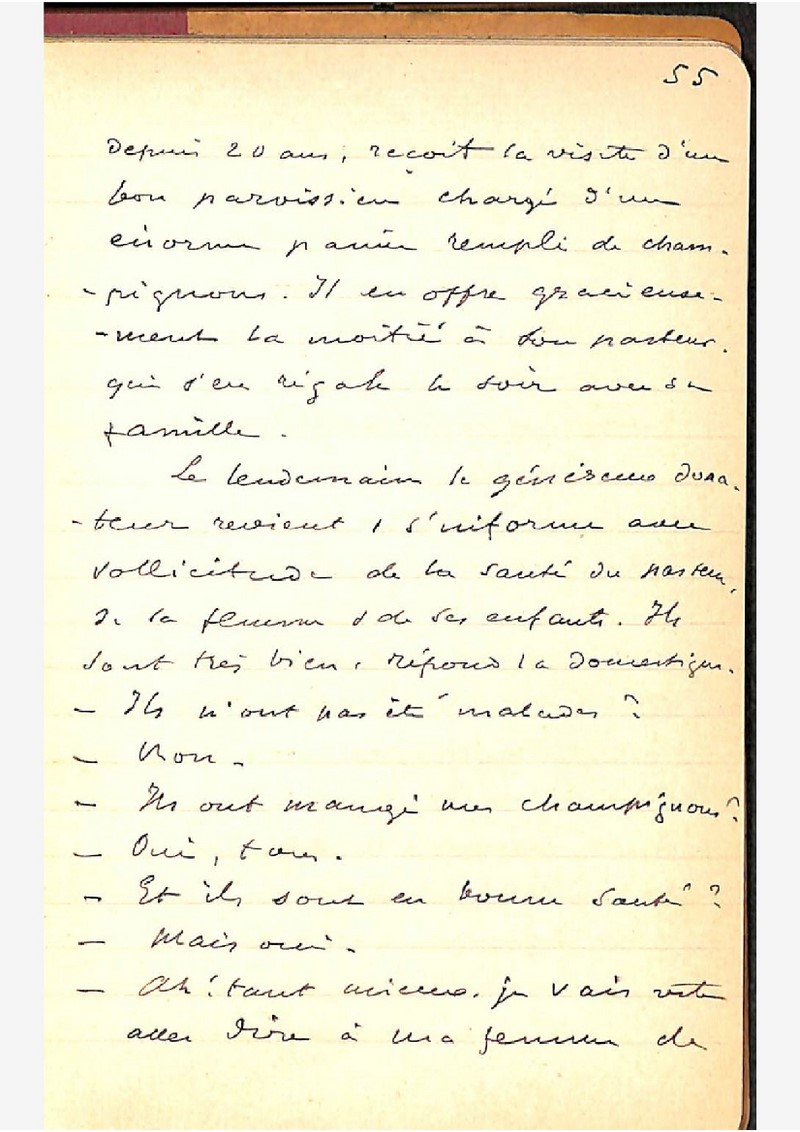 55
Depuis 20 ans, reçoit la visite d'un
bon paroissien chargé d'un
énorme panier rempli de cham-
-pignons. Il en offre gracieuse-
-ment la moitié à son pasteur.
qui s'en régale le soir avec sa
famille.
Le lendemain le généreux dona-
-teur revient, s'informe avec
sollicitude de la santé du pasteur,
de la femme & de ses enfants. Ils
sont très bien, répond la domestique.
- Ils n'ont pas été malades ?
- Non -
- Ils ont mangé mes champignons ?
- Oui, tous.
- Et ils sont en bonne santé ?
- Mais oui -
- Ah ! tant mieux. je vais vite
aller dire à ma femme de